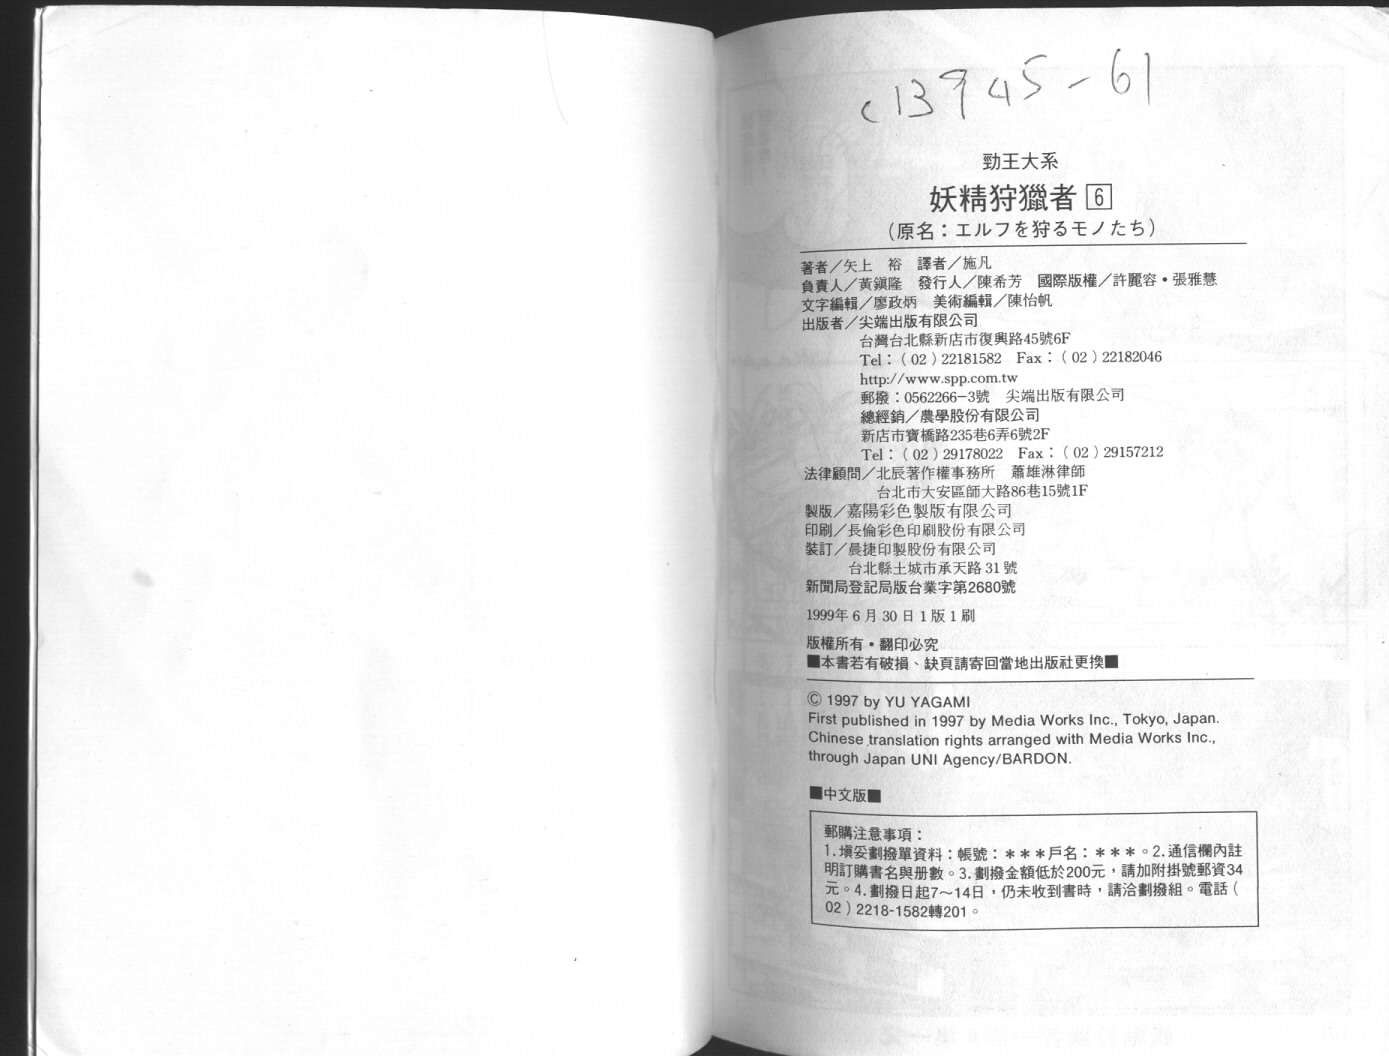 c13945-61
勁王大系
妖精狩獵者 6
（原名：エルフを狩るモノたち）
著者／矢上　裕　譯者／施凡
負責人／黃鎮隆　發行人／陳希芳　國際版權／許麗容・張雅慧
文字編輯／廖政炳　美術編輯／陳怡帆
出版者／尖端出版有限公司
台灣台北縣新店市復興路45號6F
Tel：（02）22181582　Fax：（02）22182046
http://www.spp.com.tw
郵撥：0562266－3號　尖端出版有限公司
總經銷／農學股份有限公司
新店市寶橋路235巷6弄6號2F
Tel：（02）29178022　Fax：（02）29157212
法律顧問／北辰著作權事務所　蕭雄淋律師
台北市大安區師大路86巷15號1F
製版／嘉陽彩色製版有限公司
印刷／長倫彩色印刷股份有限公司
裝訂／晨捷印製股份有限公司
台北縣土城市承天路31號
新聞局登記局版台業字第2680號
1999年6月30日1版1刷
版權所有・翻印必究
■本書若有破損、缺頁請寄回當地出版社更換■
© 1997 by YU YAGAMI
First published in 1997 by Media Works Inc., Tokyo, Japan.
Chinese translation rights arranged with Media Works Inc.,
through Japan UNI Agency/BARDON.
■中文版■
郵購注意事項：
1.填妥劃撥單資料：帳號：＊＊＊戶名：＊＊＊。2.通信欄內註
明訂購書名與冊數。3.劃撥金額低於200元，請加附掛號郵資34
元。4.劃撥日起7～14日，仍未收到書時，請洽劃撥組。電話（
02）2218-1582轉201。